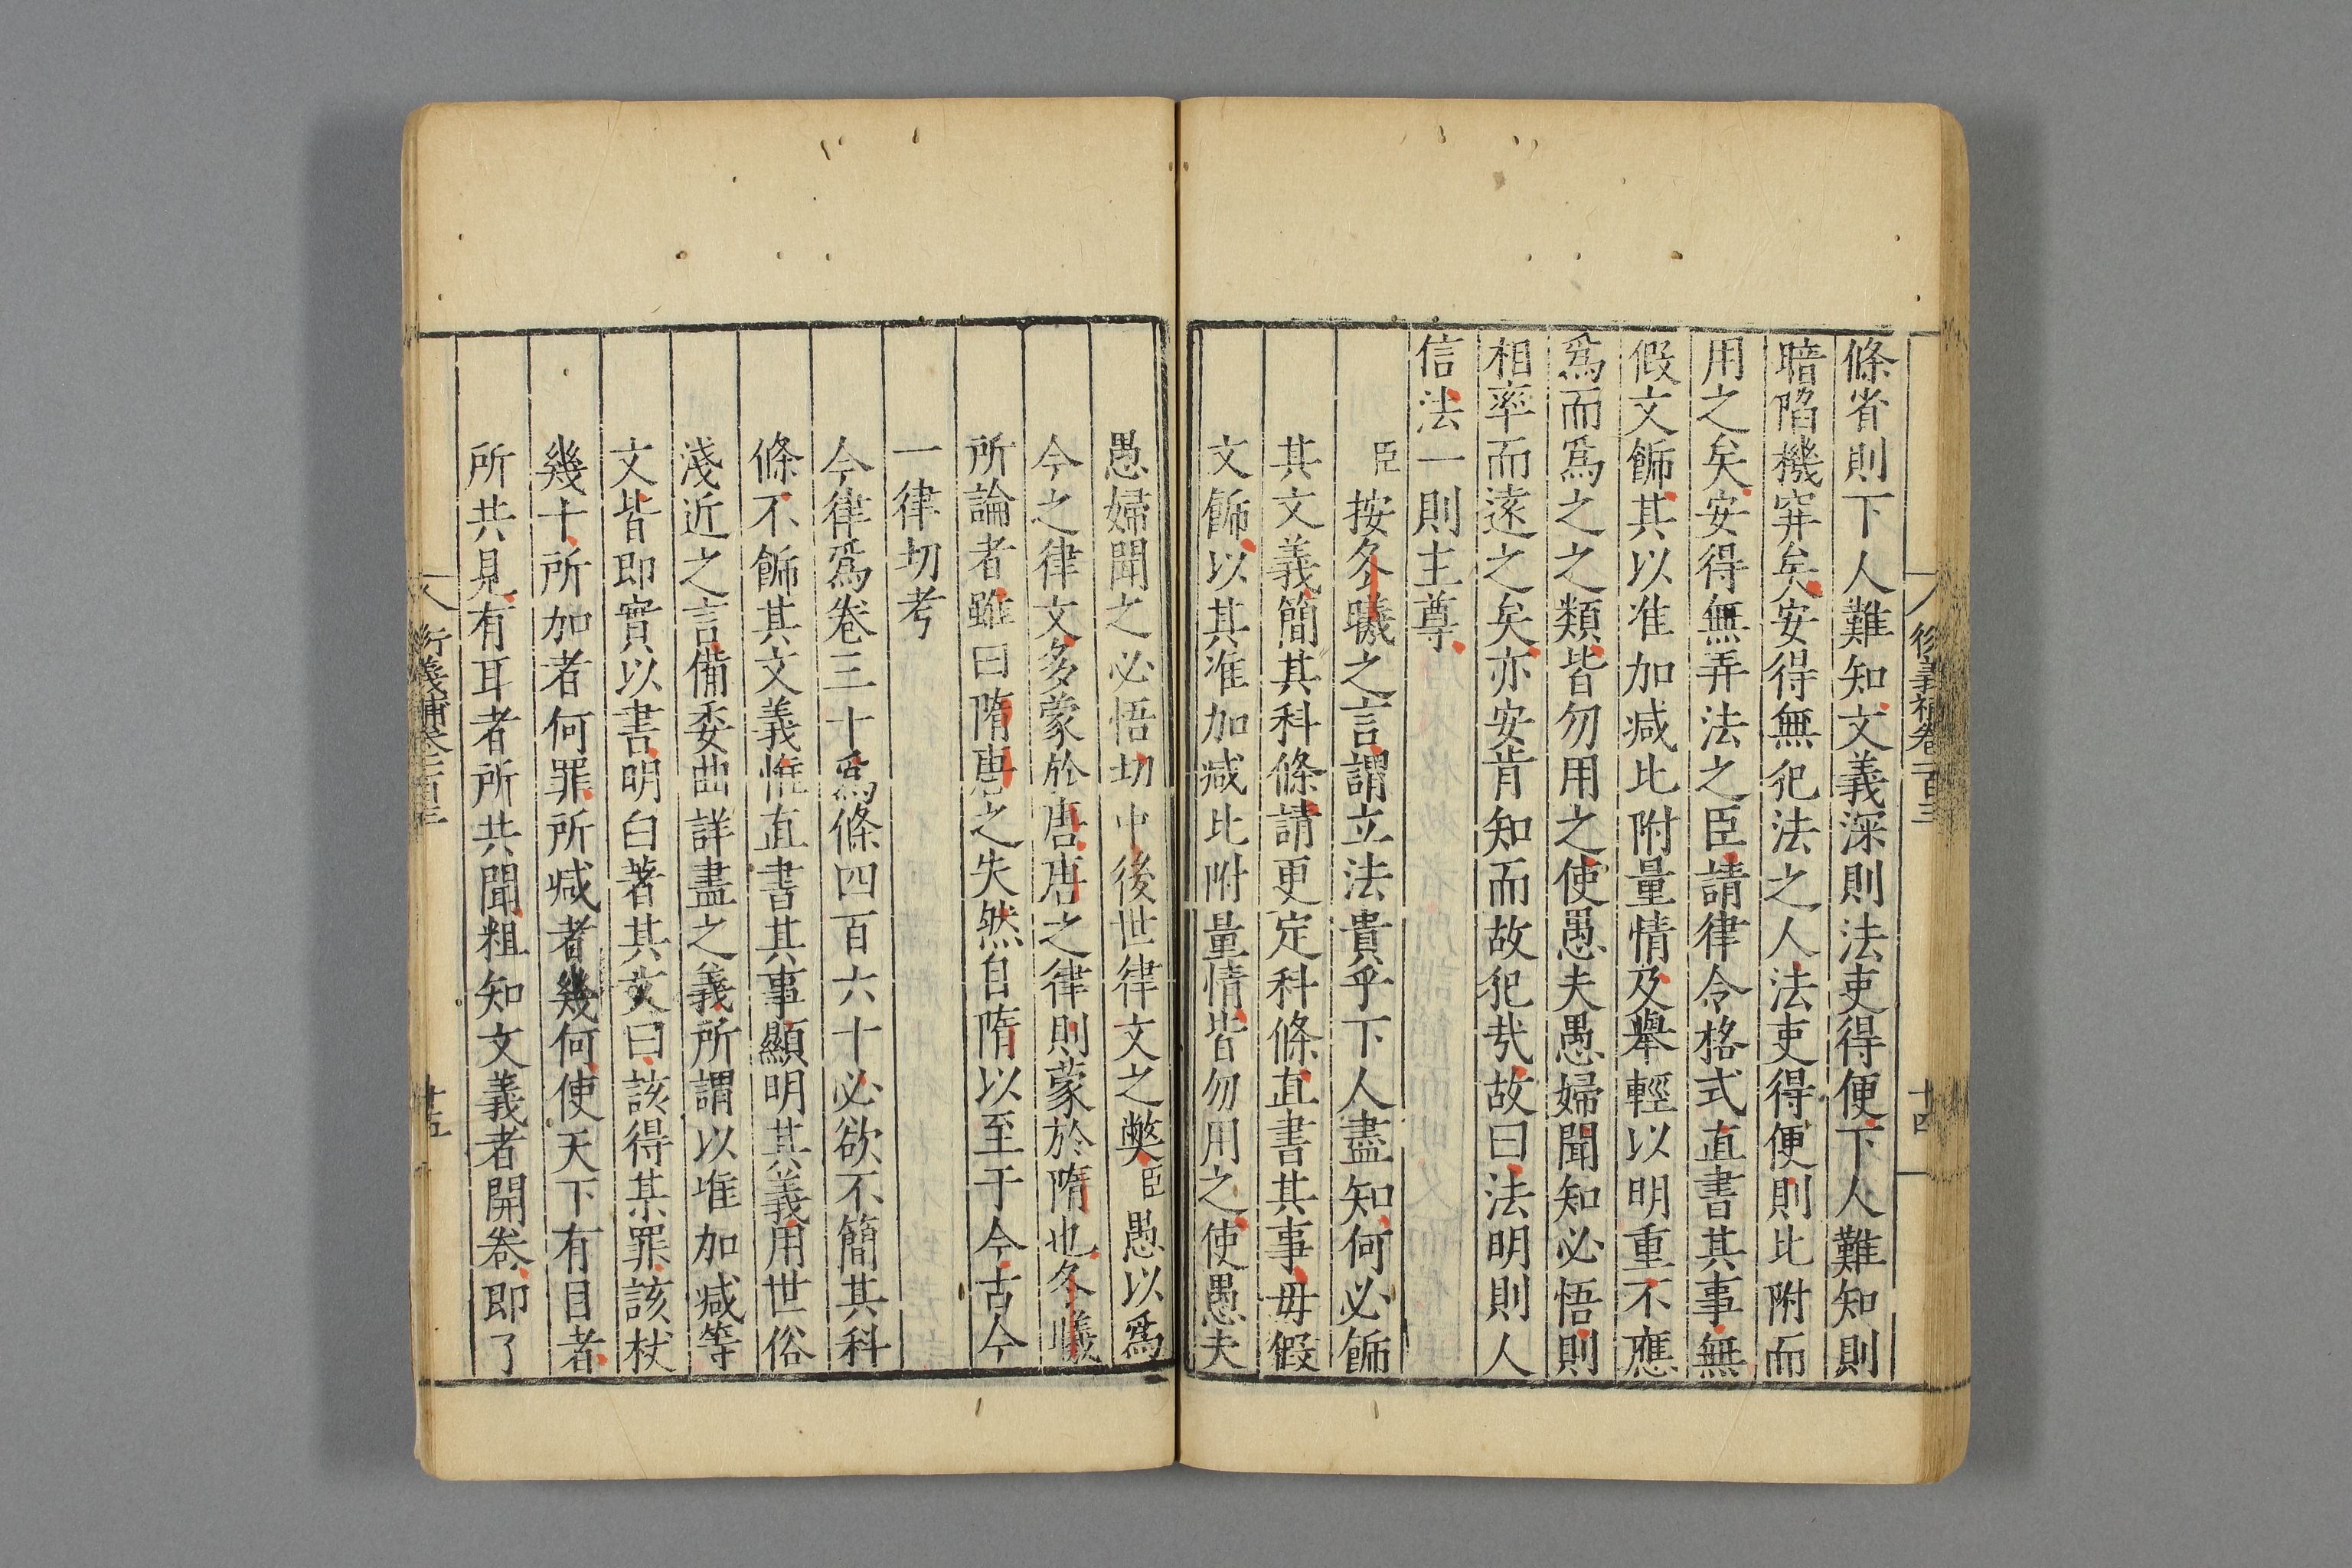 衍義補卷一百三
十四
條省則下人難知文義深則法吏得便下人難知則
暗陷機穽矣安得無犯法之人法吏得便則比附而
用之矣安得無弄法之臣請律令格式直書其事無
假文飾其以准加减比附量情及舉輕以明重不應
爲而爲之之類皆勿用之使愚夫愚婦聞知必悟則
相率而遠之矣亦安肯知而故犯㢤故曰法明則人
信法一則主尊
臣按冬曦之言謂立法貴乎下人盡知何必飾
其文義簡其科條請更定科條直書其事毋假
文飾以其准加减比附量情皆勿用之使愚夫
愚婦聞之必悟切中後世律文之獘臣愚以爲
今之律文多蒙於唐唐之律則蒙於隋也冬曦
所論者雖曰隋唐之失然自隋以至于今古今
一律切考
今律爲卷三十爲條四百六十必欲不簡其科
條不飾其文義惟直書其事顯明其義用世俗
淺近之言備委曲詳盡之義所謂以准加减等
文皆即實以書明白著其文曰該得某罪該杖
幾十所加者何罪所减者幾何使天下有目者
所共見有耳者所共聞粗知文義者開卷即了
衍義補卷一百三
十五